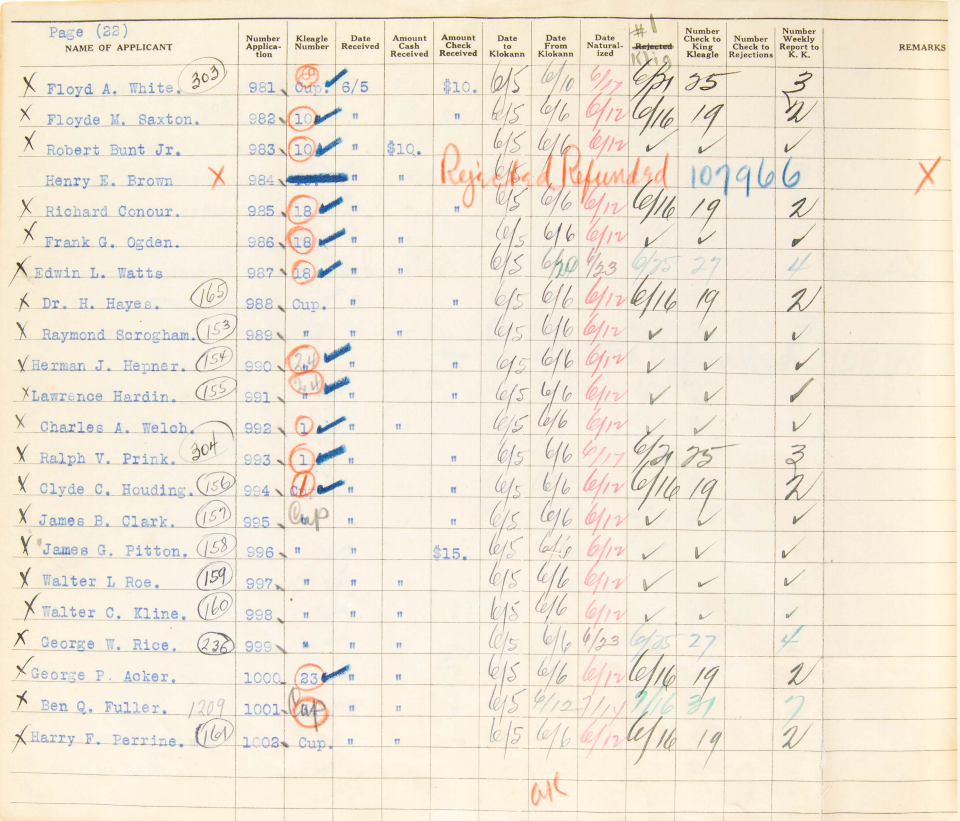 Page (22) #1
NAME OF APPLICANT Number Application Kleagle Number Date Received Amount Cash Received Amount Check Received Date to Klokann Date From Klokann Date Naturalized Rejected Klig Number Check to King Kleagle Number Check to Rejections Number Weekly Report to K. K. REMARKS
X Floyd A. White. 303 981. Cup. 6/5 $10. 6/5 6/10 6/17 6/21 25 3
X Floyde M. Saxton. 982. 10 ✓ " " 6/5 6/6 6/12 6/16 19 2
X Robert Bunt Jr. 983. 10 ✓ " $10. 6/5 6/6 6/12 ✓ ✓ ✓
Henry E. Brown X 984. " " Rejected Refunded 107966 X
X Richard Conour. 985. 18 ✓ " " 6/5 6/6 6/12 6/16 19 2
X Frank G. Ogden. 986. 18 ✓ " " 6/5 6/6 6/12 ✓ ✓ ✓
X Edwin L. Watts 987. 18 ✓ " " 6/5 6/20 6/23 6/25 27 4
X Dr. H. Hayes. 165 988. Cup. " " 6/5 6/6 6/12 6/16 19 2
X Raymond Scrogham. 153 989. " " " 6/5 6/6 6/12 ✓ ✓ ✓
X Herman J. Hepner. 154 990. 24 ✓ " " 6/5 6/6 6/12 ✓ ✓ ✓
X Lawrence Hardin. 155 991. 24 ✓ " " 6/5 6/6 6/12 ✓ ✓ ✓
X Charles A. Welch. 992. 1 ✓ " " 6/5 6/6 6/12 ✓ ✓ ✓
X Ralph V. Prink. 304 993. 1 ✓ " " 6/5 6/6 6/17 6/21 25 3
X Clyde C. Houding. 156 994. 1 ✓ " " 6/5 6/6 6/12 6/16 19 2
X James B. Clark. 157 995. Cup " " 6/5 6/6 6/12 ✓ ✓ ✓
X James G. Pitton. 158 996. " " $15. 6/5 6/6 6/12 ✓ ✓ ✓
X Walter L Roe. 159 997. " " " 6/5 6/6 6/12 ✓ ✓ ✓
X Walter C. Kline. 160 998. " " " 6/5 6/6 6/12 ✓ ✓ ✓
X George W. Rice. 236 999. " " " 6/5 6/6 6/23 6/25 27 4
X George P. Acker. 1000. 23 ✓ " " 6/5 6/6 6/12 6/16 19 2
X Ben Q. Fuller. 1209 1001. Cup " " 6/5 6/12 7/14 7/16 31 7
X Harry F. Perrine. 161 1002. Cup. " " 6/5 6/6 6/12 6/16 19 2
OK